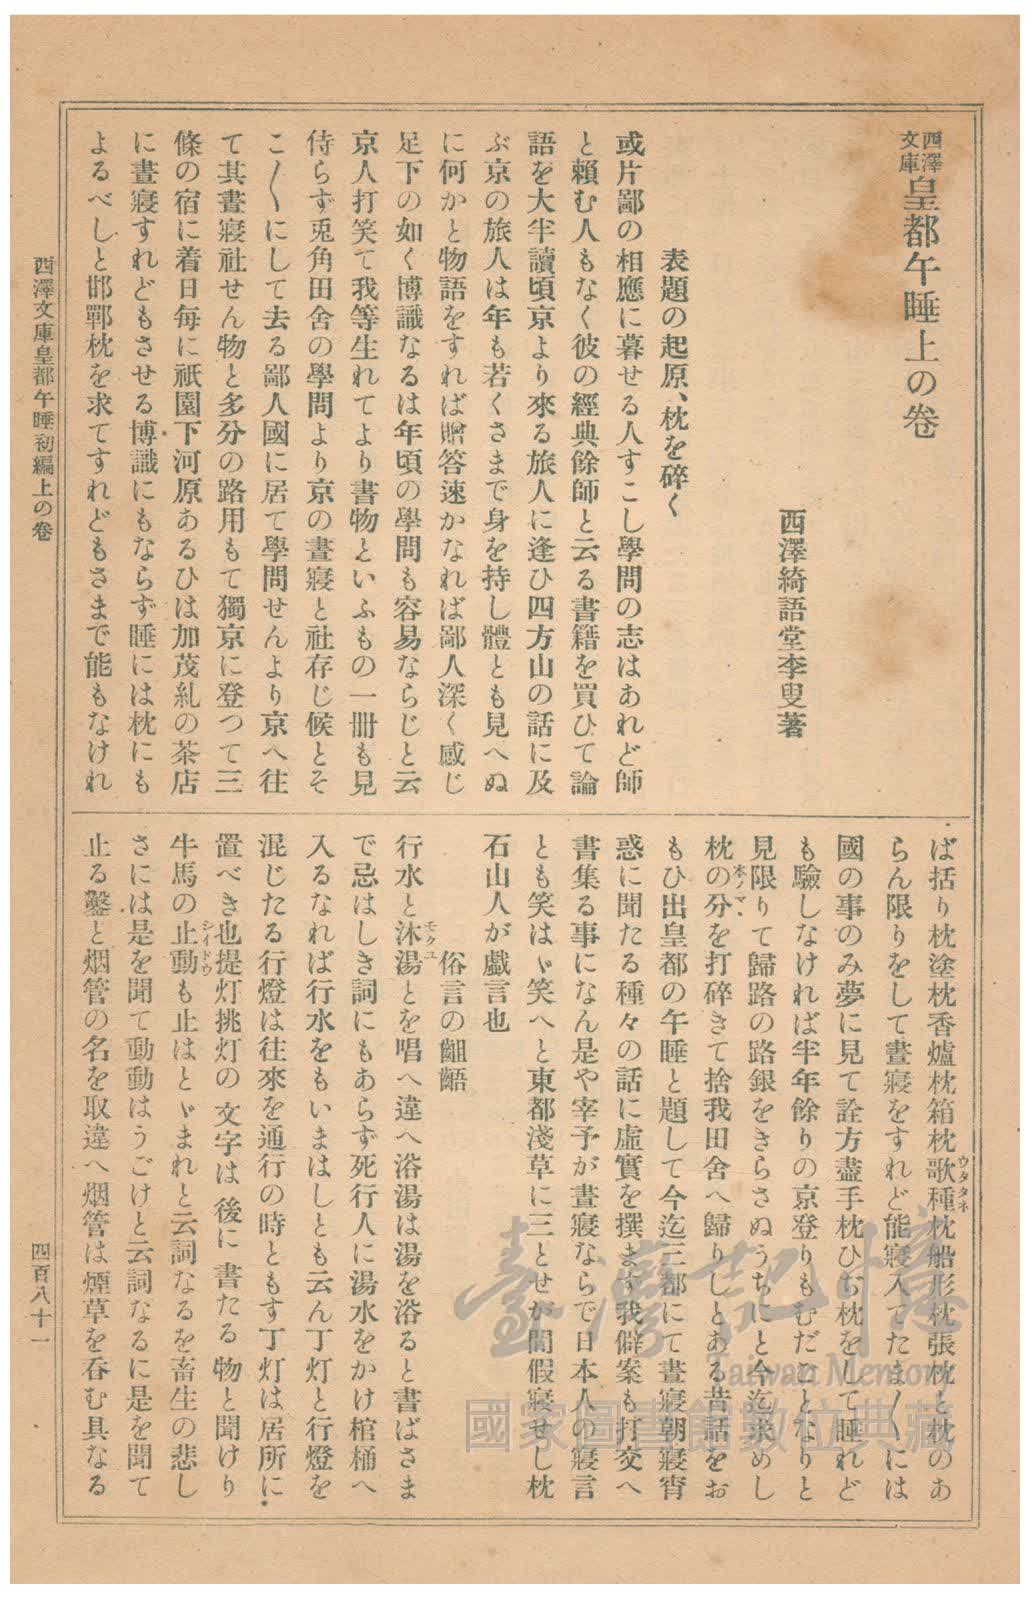 西澤文庫皇都午睡上の卷
西澤綺語堂李叟著
表題の起原、枕を碎く
或片鄙の相應に暮せる人すこし學問の志はあれど師
と賴む人もなく彼の經典餘師と云る書籍を買ひて論
語を大半讀頃京より來る旅人に逢ひ四方山の話に及
ぶ京の旅人は年も若くさまで身を持し體とも見へぬ
に何かと物語をすれば贈答速かなれば鄙人深く感じ
足下の如く博識なるは年頃の學問も容易ならじと云
京人打笑て我等生れてより書物といふもの一册も見
侍らず兎角田舍の學問より京の晝寢と社存じ候とそ
こ〳〵にして去る鄙人國に居て學問せんより京へ往
て其晝寢社せん物と多分の路用もて獨京に登つて三
條の宿に着日每に祇園下河原あるひは加茂糺の茶店
に晝寢すれどもさせる博識にもならず睡には枕にも
よるべしと邯鄲枕を求てすれどもさまで能もなけれ
ば括り枕塗枕香爐枕箱枕歌種枕船形枕張枕と枕のあ
ウタタネ
らん限りをして晝寢をすれど能寢入てたま〳〵には
國の事のみ夢に見て詮方盡手枕ひぢ枕をして睡れど
も驗しなければ半年餘りの京登りもむだごとなりと
見限りて歸路の路銀をきらさぬうちにと今迄求めし
枕の分を打碎きて捨我田舍へ歸りしとある昔話をお
本ノマヽ
もひ出皇都の午睡と題して今迄三都にて晝寢朝寢宵
惑に聞たる種々の話に虛實を撰まず我僻案も打交へ
書集る事になん是や宰予が晝寢ならで日本人の寢言
とも笑はゞ笑へと東都淺草に三とせが間假寢せし枕
石山人が戲言也
俗言の齟齬
行水と沐湯とを唱へ違へ浴湯は湯を浴ると書ばさま
モクユ
で忌はしき詞にもあらず死行人に湯水をかけ棺桶へ
入るなれば行水をもいまはしとも云ん丁灯と行燈を
混じたる行燈は往來を通行の時ともす丁灯は居所に
置べき也提灯挑灯の文字は後に書たる物と聞けり
牛馬の止動も止はとゞまれと云詞なるを畜生の悲し
シイドウ
さには是を聞て動動はうごけと云詞なるに是を聞て
止る鑿と烟管の名を取違へ烟管は煙草を呑む具なる
西澤文庫皇都午睡初編上の卷
四百八十一
臺灣記憶
Taiwan Memory
國家圖書館數位典藏